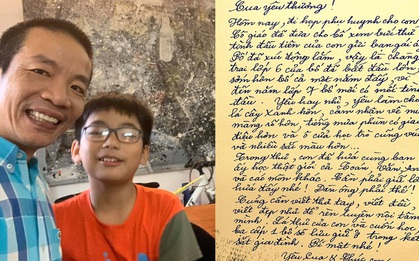 Cua yêu thương!
Hôm nay, đi họp phụ huynh cho con
Cô giáo đã đưa cho bố xem bức thư
tình đầu tiên của con gửi bạn gái
Bố đã xúc động lắm, vậy là chàng
trai lớp 6 của bố đã bắt đầu lớn
sớm hơn bố cả một năm đấy, vì
đến năm lớp 7 bố mới có mối tình
đầu. Yêu hay nhỉ, yêu làm cho
lá cây xanh hơn, cảm nhận về
mạng rõ hơn, tiếng mưa phùn có giai
điệu hơn và ô cửa học trò cũng
và nhiều sắc màu hơn...
Trong thư, con đã hứa cùng bạn
ấy học thật giỏi cả Toán, Văn, Anh
và các môn khác. Nên phải giữ lời
hứa đấy nhé! Đàn ông phải thế!
Cũng cần viết thư tay, viết đều
viết đẹp như để rèn luyện nội tâm
mình. Lá thư của con và cuốn học
bạ cấp 1 bố sẽ lưu giữ ở trong két
sắt gia đình. Bí mật nhé!
Yêu Cua